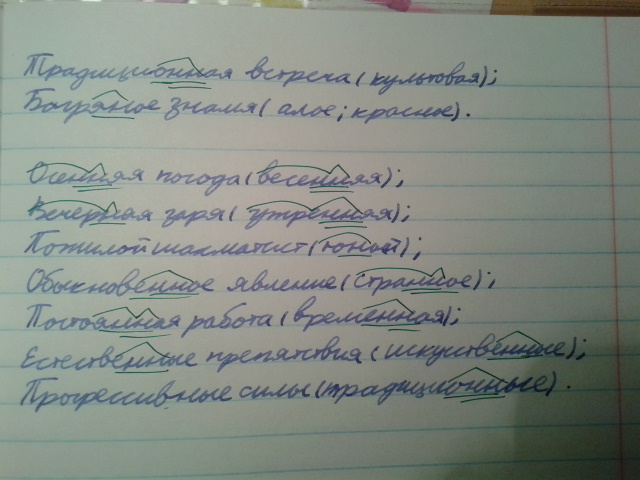 Традиционная встреча (культовая);
Багряное знамя (алое; красное).
Осенняя погода (весенняя);
Вечерняя заря (утренняя);
Пожилой шахматист (юный);
Обыкновенное явление (странное);
Постоянная работа (временная);
Естественные препятствия (искусственные);
Прогрессивные силы (традиционные).